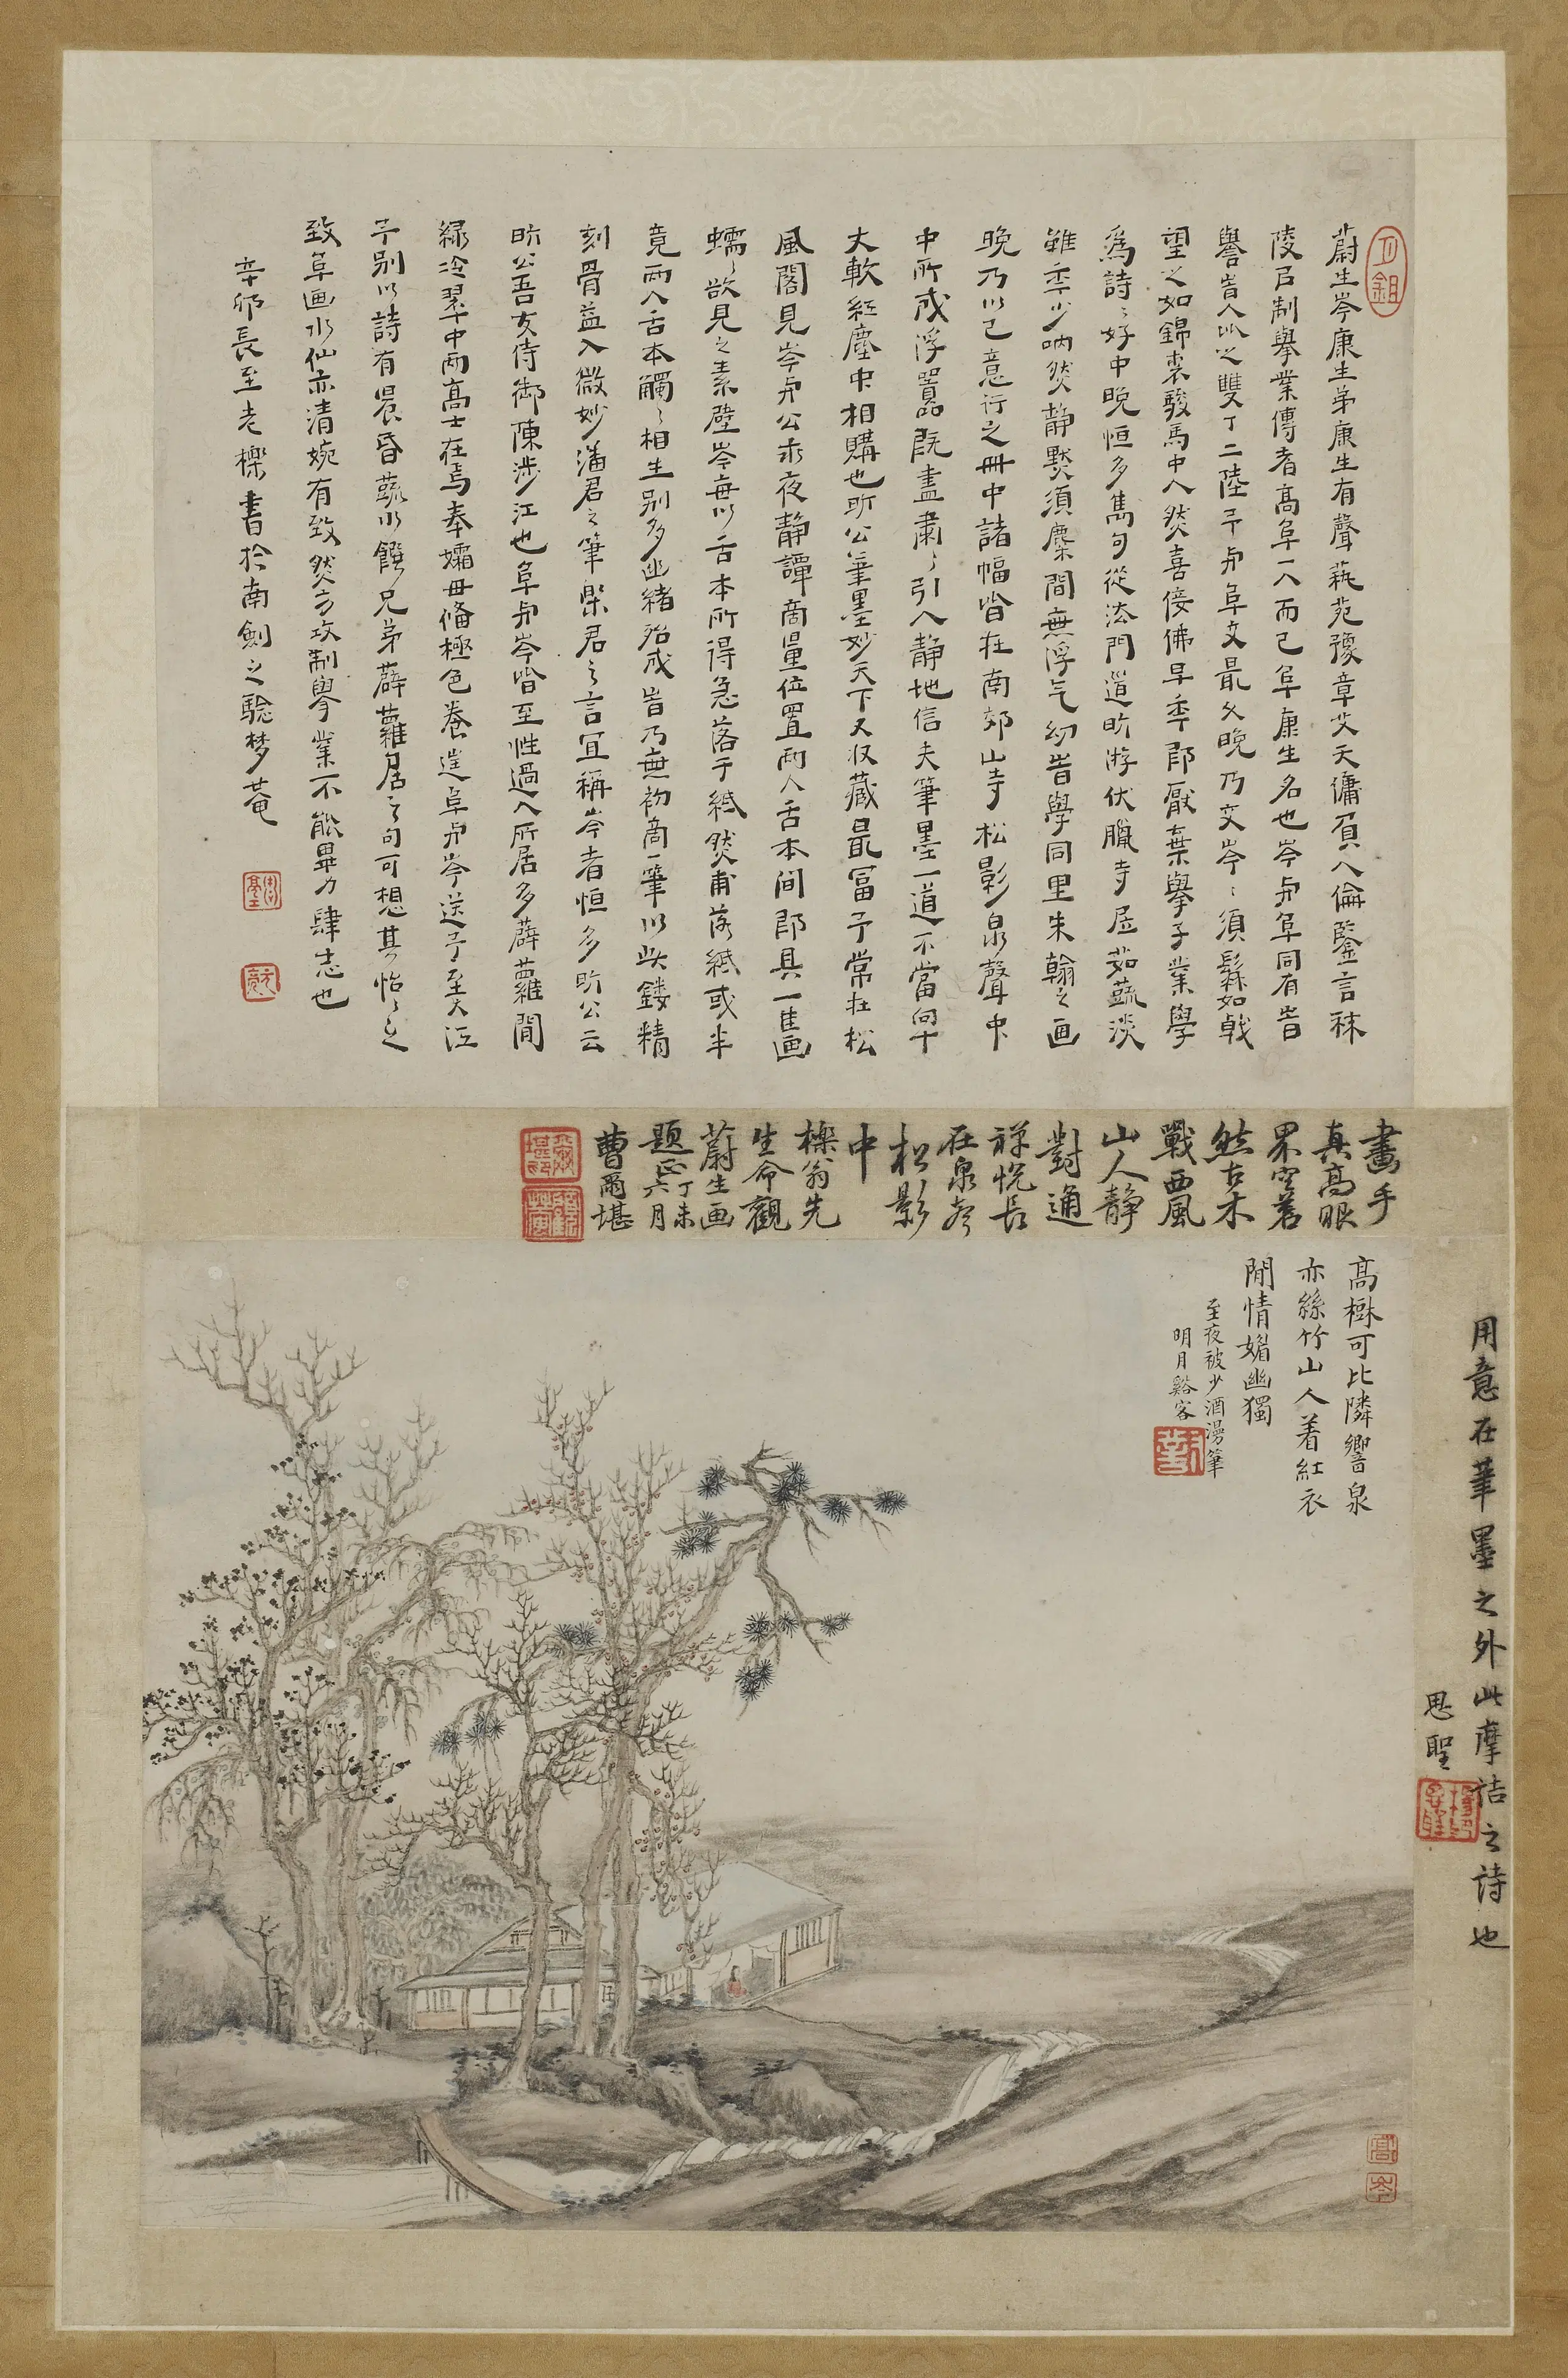 蔚生岑康生弟康生有聲蓺苑豫章艾天傭負人倫鑒言秣
陵后制舉業傳者高阜一人而已阜康生名也岑與阜同有旹
譽旹人以之雙丁二陸予與阜交最久晚乃交岑岑須髯如戟
望之如錦裘駿馬中人然喜侫佛早年即厭棄舉子業學
為詩詩好中晚恒多雋句從法門道昕游伏臘寺居茹蔬淡
雖年少吶然靜默須麋間無浮气幼旹學同里朱翰之画
晚乃以己意行之冊中諸幅皆在南郊山寺松影泉聲中
中所成浮囂既盡肅肅引人靜地信夫筆墨一道不當向十
丈軟紅塵中相購也昕公筆墨妙天下又收藏最富予常在松
風閣見岑與公永夜靜譚商量位置兩人舌本間即具一佳画
蠕蠕欲見之素壁岑每以舌本所得急落于紙然甫落紙或半
竟兩人舌本觸觸相生別多幽緒殆成旹乃無初商一筆以此鏤精
刻骨益入微妙潘君之筆樂君之言宜稱岑者恒多昕公云
昕公吾友侍御陳涉江也阜與岑皆至性過人所居多薜蘿閒
綠冷翠中兩高士在焉奉孀母備極色養逆阜與岑送予至大江
予別以詩有晨昏蔬水饌兄弟薜蘿居之句可想其怡怡之
致阜画水仙亦清婉有致然方攻制舉業不能畢力肆志也
辛卯長至老櫟書於南劍之騐梦菴
畫手
真高眼
界空蒼
然古木
戰西風
山人靜
對通
禪悅長
在泉聲
松影
中
櫟翁先
生命觀
蔚生画
題丁未
正六月
曹爾堪
高樹可比隣響泉
亦絲竹山人着紅衣
閒情媚幽獨
至夜被少酒漫筆
明月谿客
用意在筆墨之外此摩詰之詩也
思聖
高
岑